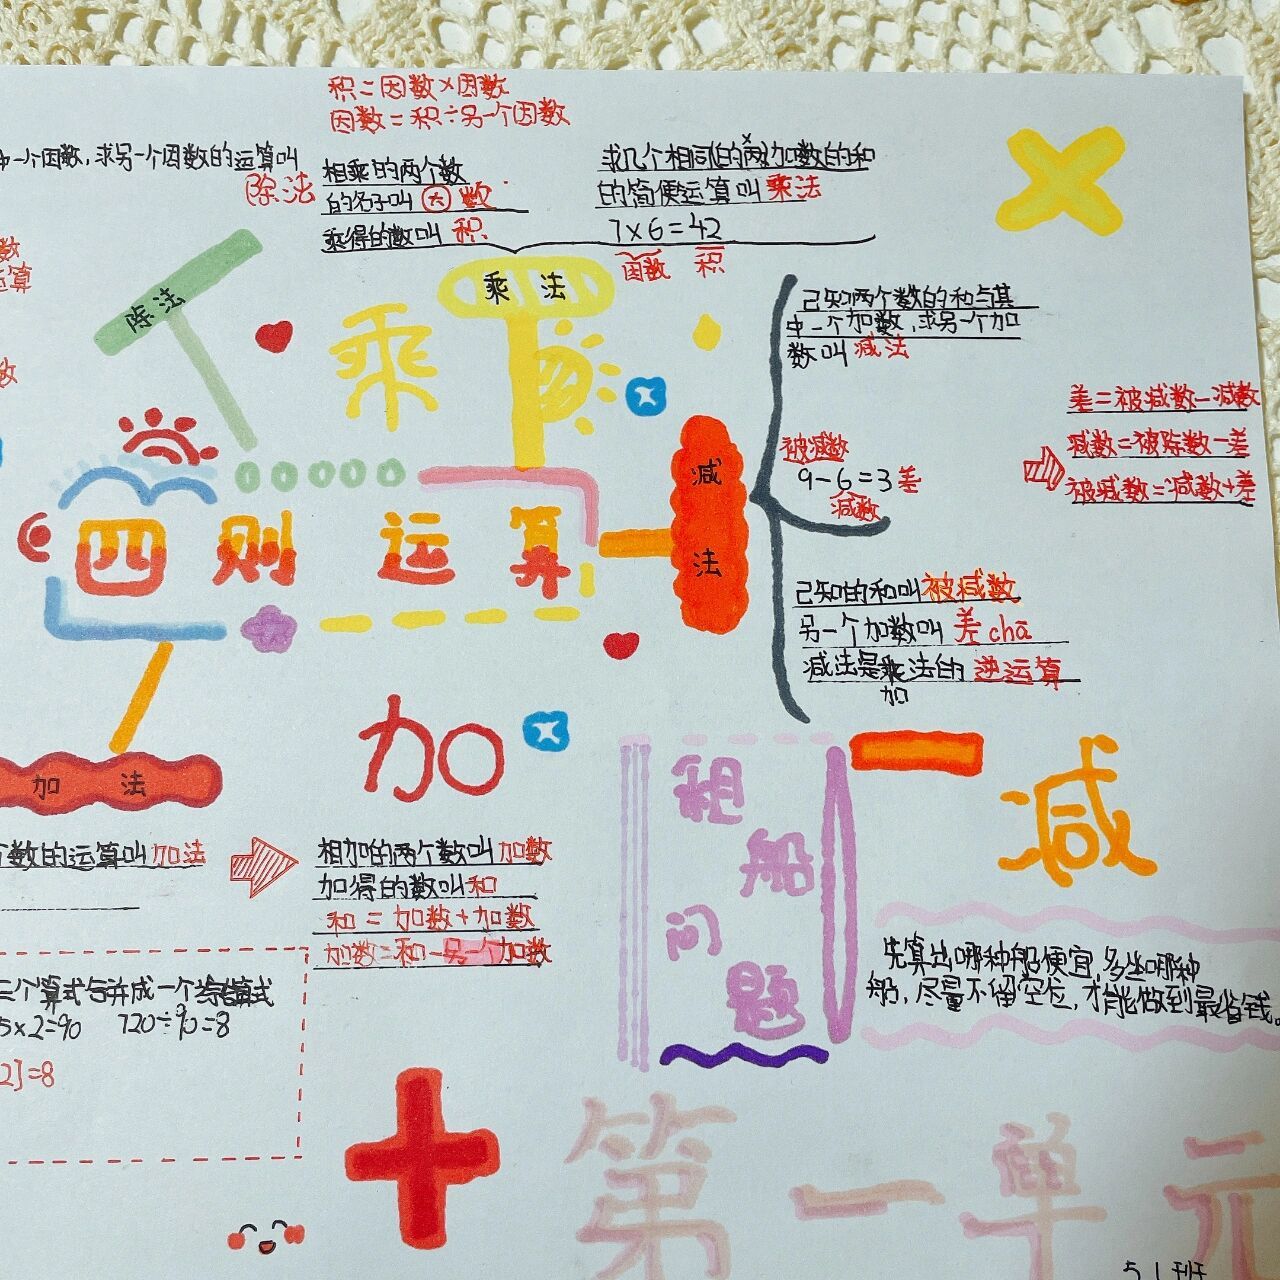 积=因数×因数
因数=积÷另一个因数
中一个因数,求另一个因数的运算叫
除法
相乘的两个数
的名子叫因数.
乘得的数叫积
求几个相同的两x加数的和
的简便运算叫乘法
7×6=42
因数 积
数
运算
数
除法
乘
乘 法
已知两个数的和与其
中一个加数,求另一个加
数叫减法
被减数
9-6=3差
减数
差=被减数-减数
减数=被减数-差
被减数=减数+差
减
法
四则运算
已知的和叫被减数
另一个加数叫差chā
减法是乘法的逆运算
加
加
加 法
个数的运算叫加法
相加的两个数叫加数
加得的数叫和
和=加数+加数
加数=和-另一个加数
三个算式合并成一个综合算式
5×2=90 720÷90=8
2]=8
租
船
问
题
减
先算出哪种船便宜,多坐哪种
船,尽量不留空位,才能做到最省钱。
第一单元
5.1班